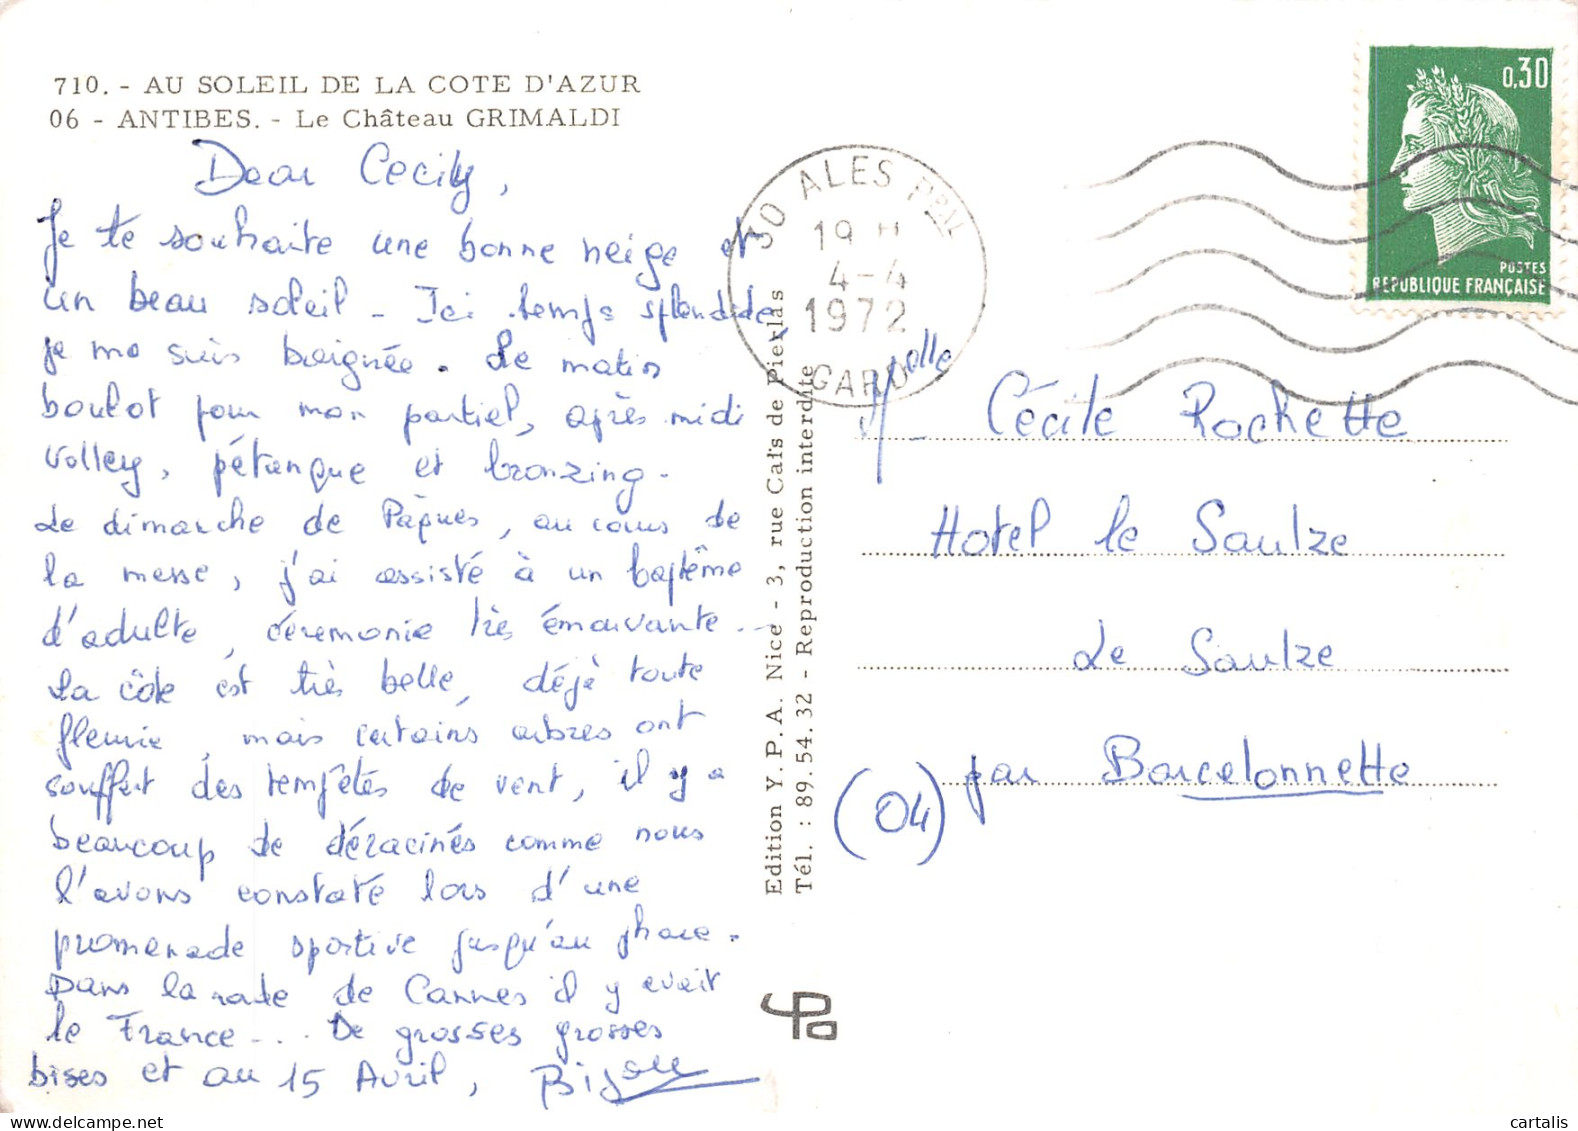 710. - AU SOLEIL DE LA COTE D'AZUR
06 - ANTIBES. - Le Château GRIMALDI
Dear Cecily,
Je te souhaite une bonne neige et
un beau soleil - Ici temps splendide,
je me suis baignée. Le matin
boulot pour mon partiel, après midi
volley, pétanque et bronzing.
Le dimanche de Pâques, au cours de
la messe, j'ai assisté à un baptême
d'adulte, cérémonie très émouvante...
La côte est très belle, déjà toute
fleurie, mais certains arbres ont
souffert des tempêtes de vent, il y a
beaucoup de déracinés comme nous
l'avons constaté lors d'une
promenade sportive jusqu'au phare.
Dans la rade de Cannes il y avait
le France... De grosses grosses
bises et au 15 Avril,
30 ALES PPAL
19 H
4-4
1972
GARD
0,30
POSTES
REPUBLIQUE FRANÇAISE
Melle Cécile Rochette
Hotel le Saulze
Le Saulze
par Barcelonnette
(04)
Edition Y. P. A. Nice - 3, rue Caïs de Pierlas
Tél. : 89.54.32 - Reproduction interdite
ypa
cartalis